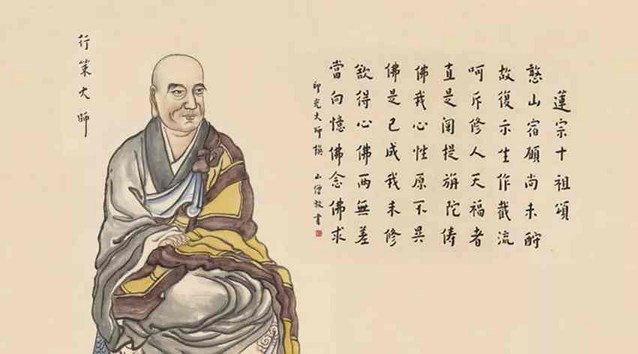 蓮宗十祖頌
憨山宿願尚未酧
故復示生作截流
呵斥修人天福者
直是闡提旃陀儔
佛我心性原不異
佛是已成我未修
欲得心佛兩無差
當向憶佛念佛求
印光大師撰 山僧敬書
行策大師